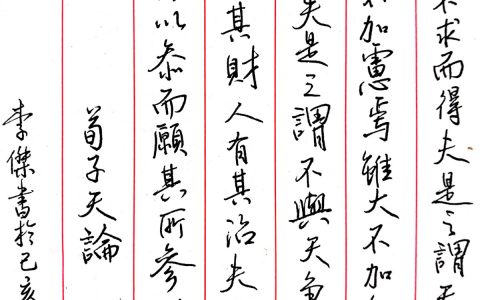 不求而得夫是之謂天
不加慮焉雖大不加
夫是之謂不與天爭
其財人有其治夫
以叅而願其所參
荀子天論
李傑書於己亥